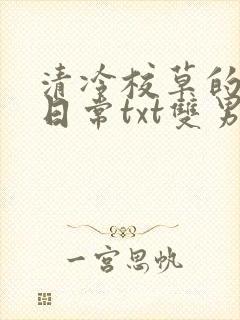 清冷校草的
日常txt雙男
一宮思帆